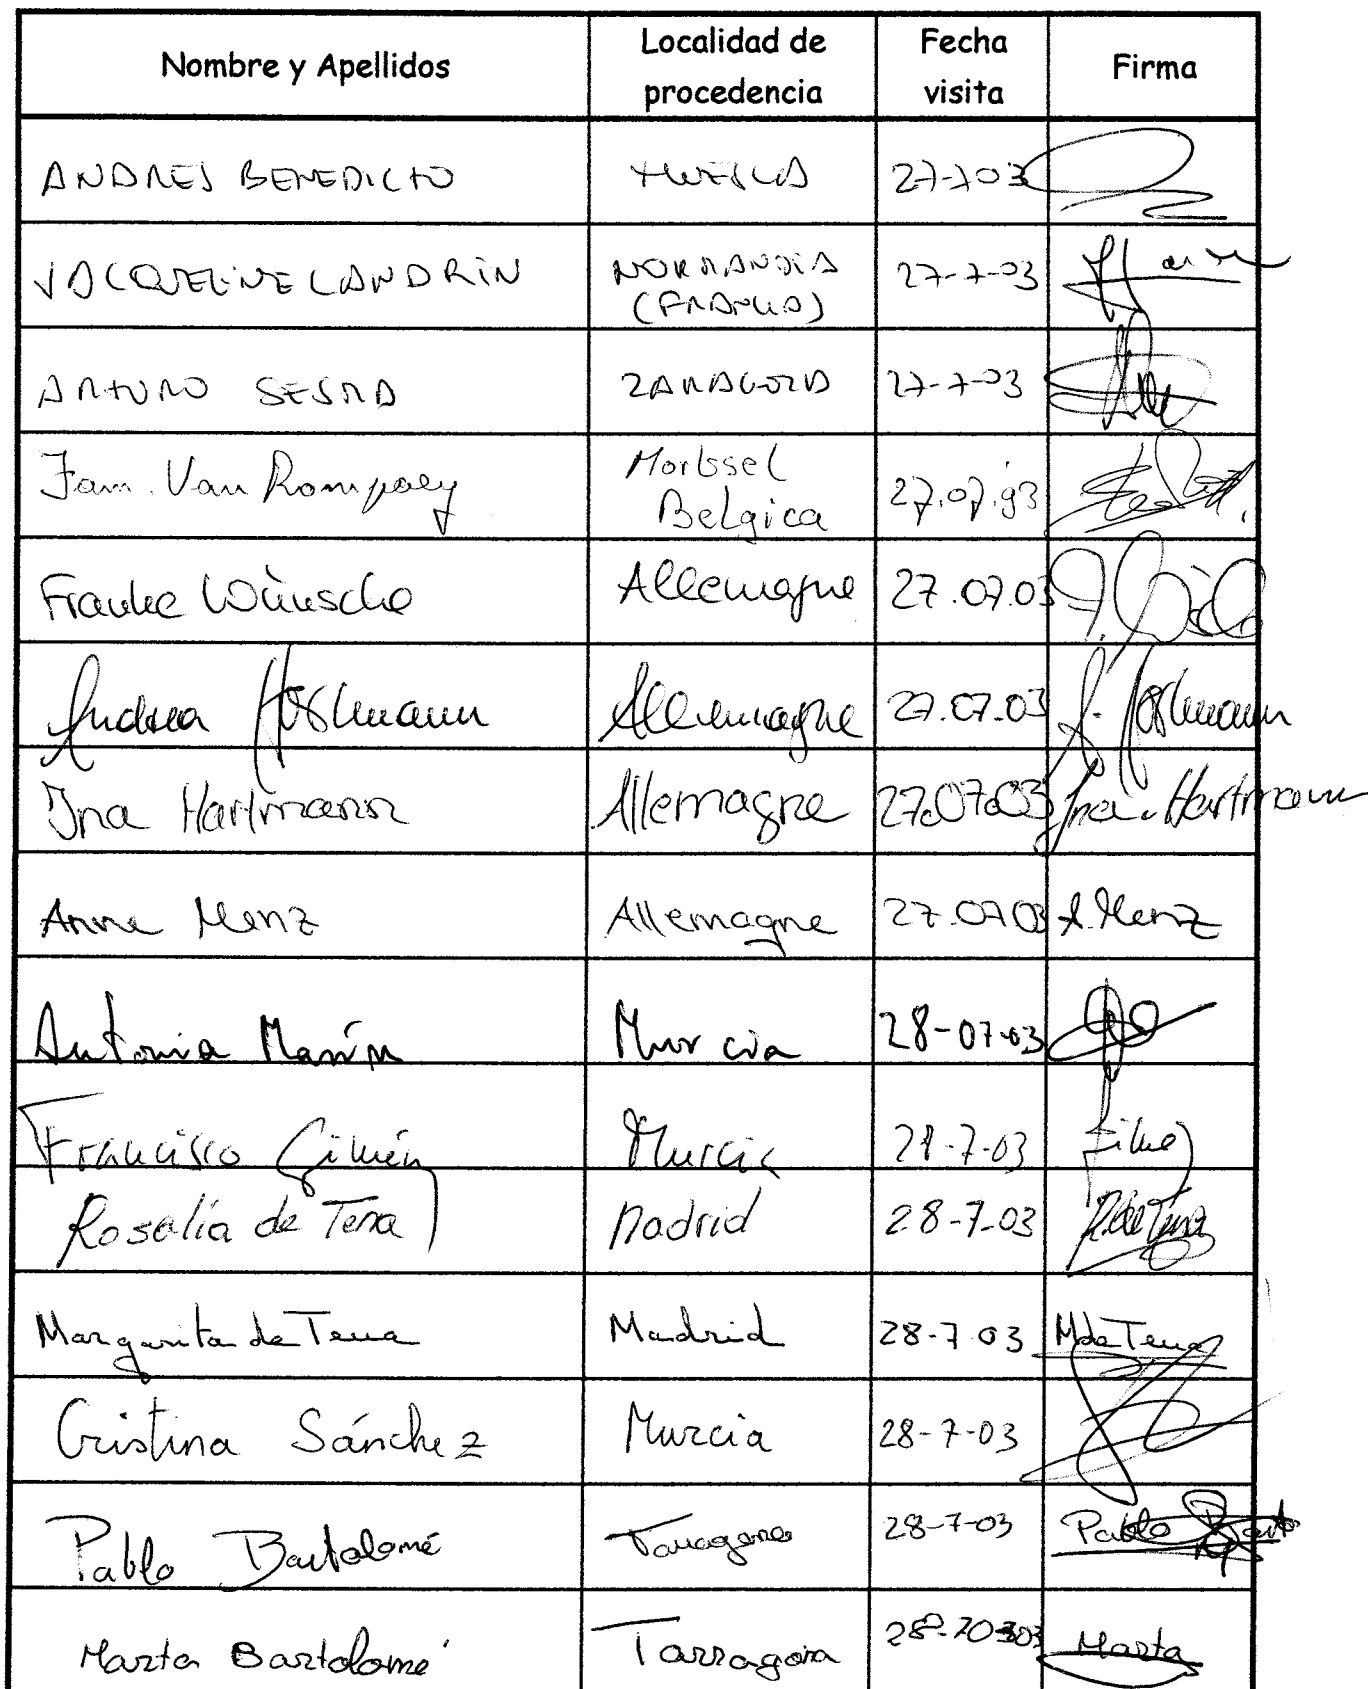 Nombre y Apellidos
Localidad de
procedencia
Fecha
visita
Firma
ANDRES BENEDICTO HUESCA 27-7-03
JACQUELINE LANDRIN NORMANDIA
(FRANCIA) 27-7-03
ARTURO SESMA ZARAGOZA 27-7-03
Fam. Van Rompaey Mortssel
Belgica 27.07.93
Frauke Wünsche Allemagne 27.07.03
Andrea Allemagne 27.07.03
Ina Hartmann Allemagne 27.07.03 Ina Hartmann
Anne Menz Allemagne 27.07.03 A. Menz
Antonia Marín Murcia 28-07-03
Francisco Murcia 28-7-03
Rosalía de Tena Madrid 28-7-03 R. de Tena
Margarita de Tena Madrid 28-7-03 M de Tena
Cristina Sánchez Murcia 28-7-03
Pablo Bartolomé Tarragona 28-7-03 Pablo
Marta Bartolomé Tarragona Marta